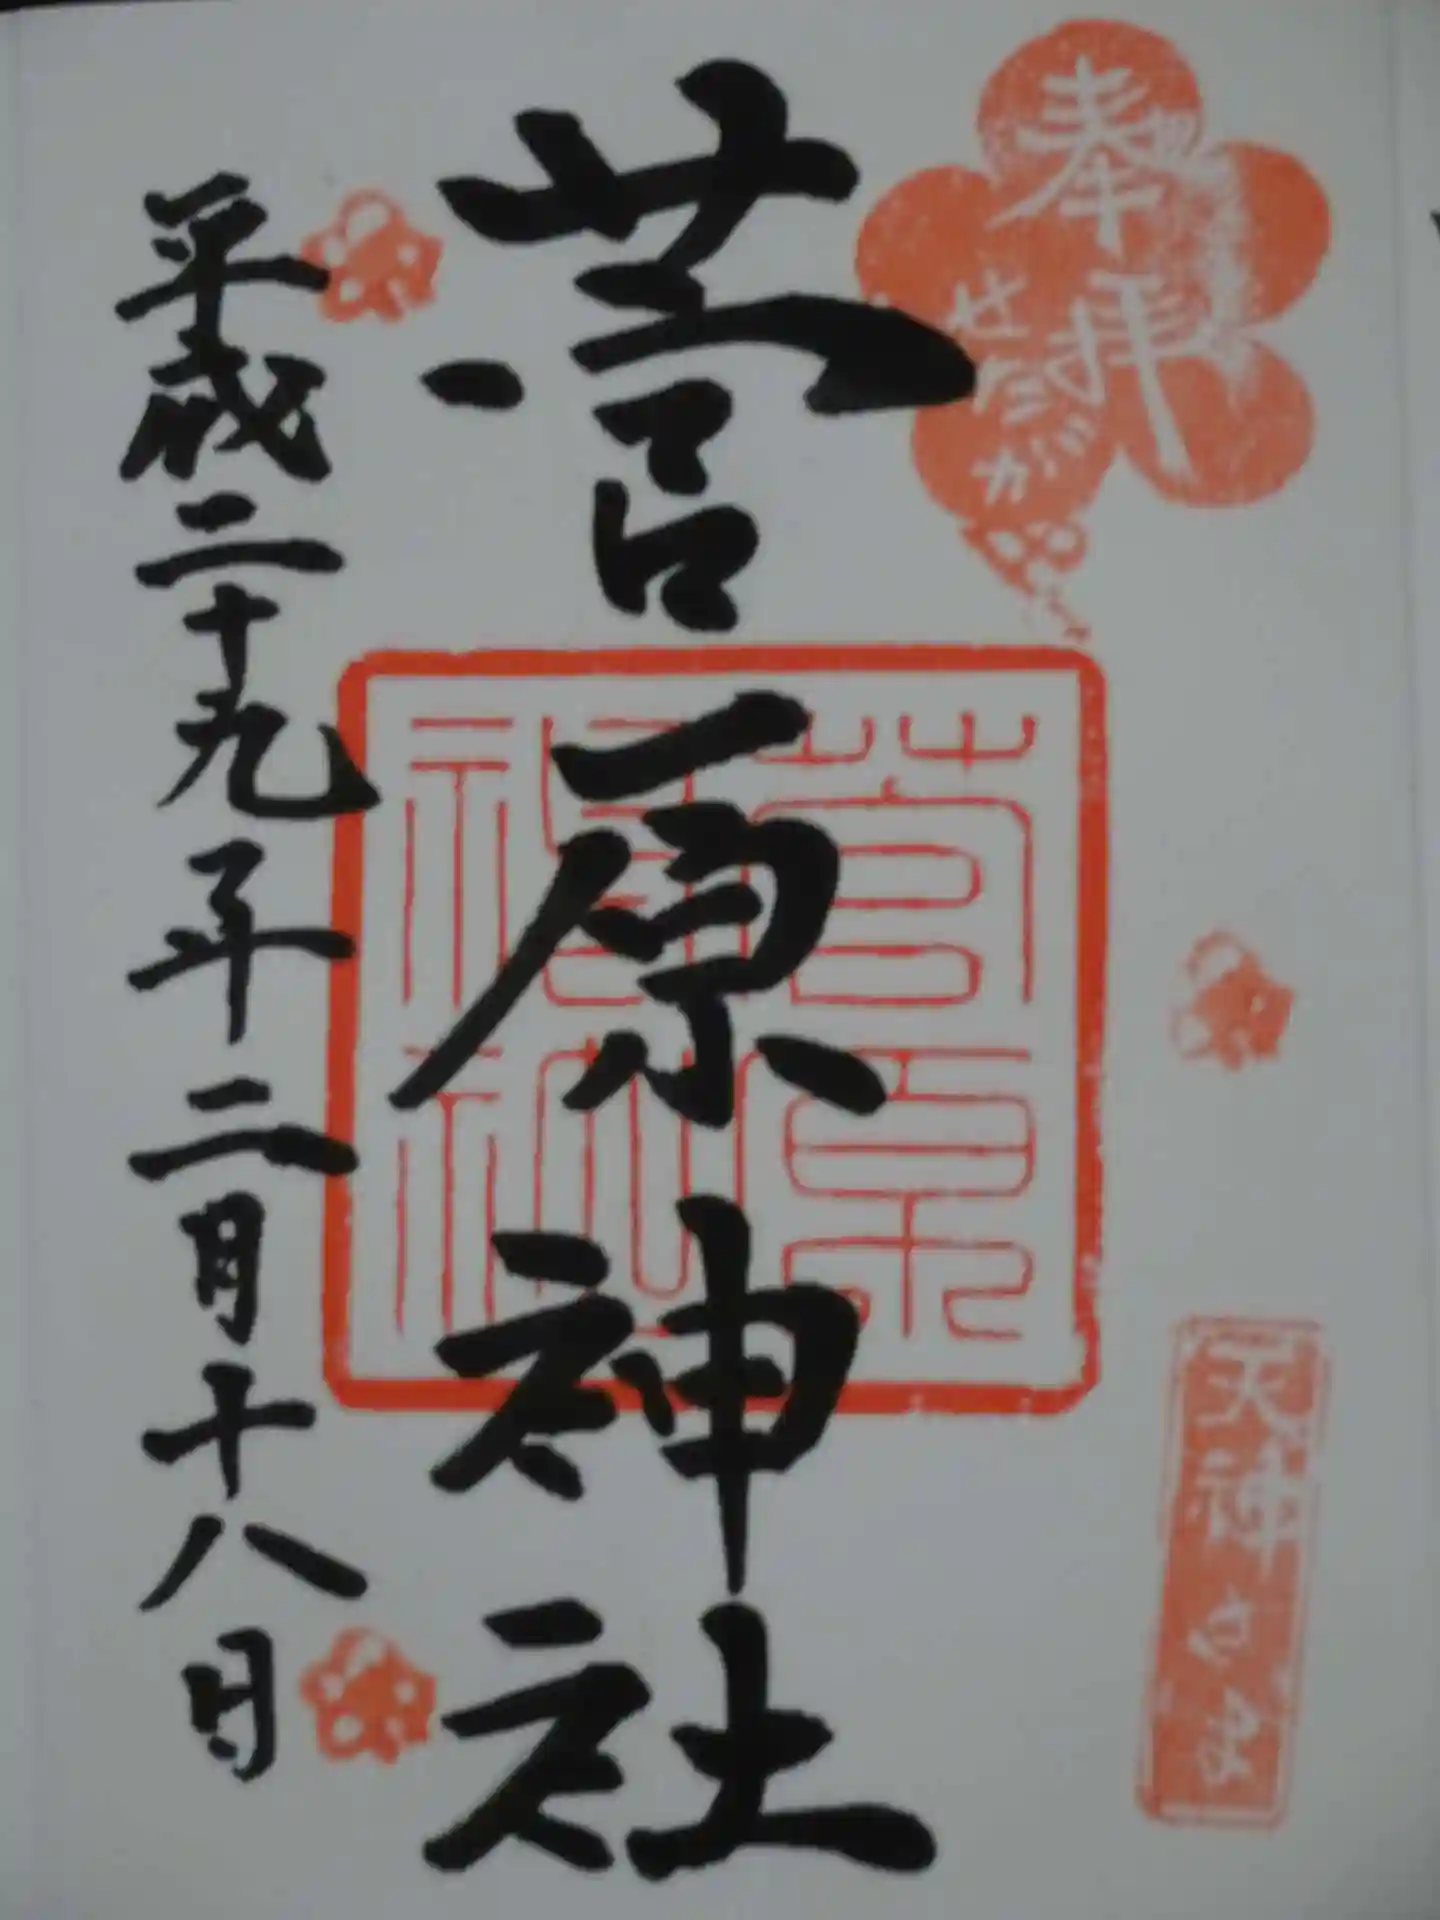 奉拝
せたがや
天神さま
菅原神社
菅原
神社
平成二十九年二月十八日